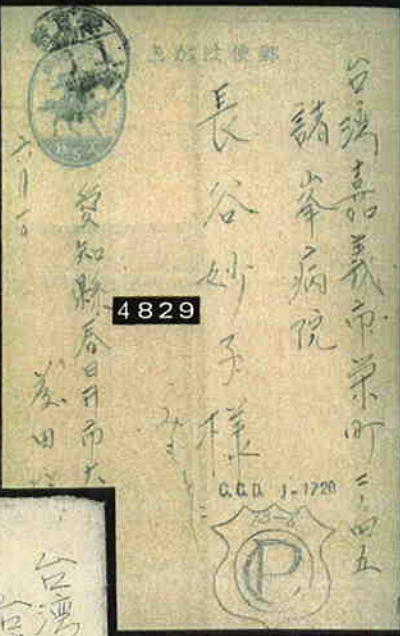 郵便はがき
台湾嘉義市栄町二ノ四五
諸峯病院
長谷妙子様
みもとに
愛知縣春日井市大
六月一日
4829
C.C.D. J-1720
P
台湾
台